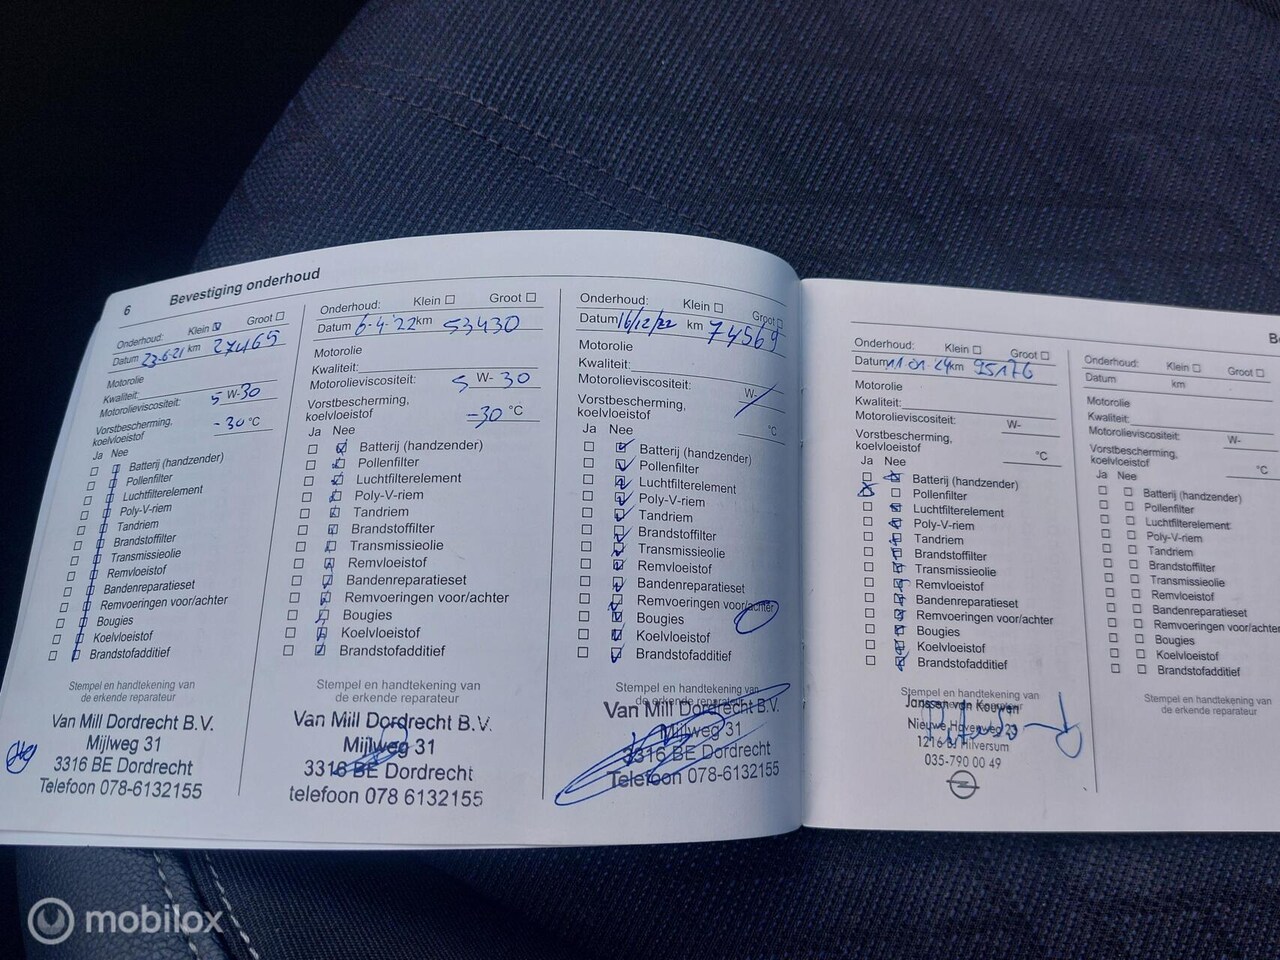 6 Bevestiging onderhoud
Onderhoud: Klein Groot
Datum 23-6-21 km 27465
Motorolie
Kwaliteit:
Motorolieviscositeit: 5 W-30
Vorstbescherming,
koelvloeistof -30 °C
Ja Nee
Batterij (handzender)
Pollenfilter
Luchtfilterelement
Poly-V-riem
Tandriem
Brandstoffilter
Transmissieolie
Remvloeistof
Bandenreparatieset
Remvoeringen voor/achter
Bougies
Koelvloeistof
Brandstofadditief
Stempel en handtekening van
de erkende reparateur
Van Mill Dordrecht B.V.
Mijlweg 31
3316 BE Dordrecht
Telefoon 078-6132155
Onderhoud: Klein Groot
Datum 6-4-'22 km 53430
Motorolie
Kwaliteit:
Motorolieviscositeit: 5 W-30
Vorstbescherming,
koelvloeistof -30 °C
Ja Nee
Batterij (handzender)
Pollenfilter
Luchtfilterelement
Poly-V-riem
Tandriem
Brandstoffilter
Transmissieolie
Remvloeistof
Bandenreparatieset
Remvoeringen voor/achter
Bougies
Koelvloeistof
Brandstofadditief
Stempel en handtekening van
de erkende reparateur
Van Mill Dordrecht B.V.
Mijlweg 31
3316 BE Dordrecht
telefoon 078 6132155
Onderhoud: Klein Groot
Datum 16/12/22 km 74569
Motorolie
Kwaliteit:
Motorolieviscositeit: W-
Vorstbescherming,
koelvloeistof °C
Ja Nee
Batterij (handzender)
Pollenfilter
Luchtfilterelement
Poly-V-riem
Tandriem
Brandstoffilter
Transmissieolie
Remvloeistof
Bandenreparatieset
Remvoeringen voor/achter
Bougies
Koelvloeistof
Brandstofadditief
Stempel en handtekening van
de erkende reparateur
Van Mill Dordrecht B.V.
Mijlweg 31
3316 BE Dordrecht
Telefoon 078-6132155
Onderhoud: Klein Groot
Datum 11-01-24 km 95176
Motorolie
Kwaliteit:
Motorolieviscositeit: W-
Vorstbescherming,
koelvloeistof °C
Ja Nee
Batterij (handzender)
Pollenfilter
Luchtfilterelement
Poly-V-riem
Tandriem
Brandstoffilter
Transmissieolie
Remvloeistof
Bandenreparatieset
Remvoeringen voor/achter
Bougies
Koelvloeistof
Brandstofadditief
Stempel en handtekening van
de erkende reparateur
Janssen van Kouwen
Nieuwe Havenweg 23
Hilversum
035-790 00 49
Onderhoud: Klein Groot
Datum km
Motorolie
Kwaliteit:
Motorolieviscositeit: W-
Vorstbescherming,
koelvloeistof °C
Ja Nee
Batterij (handzender)
Pollenfilter
Luchtfilterelement
Poly-V-riem
Tandriem
Brandstoffilter
Transmissieolie
Remvloeistof
Bandenreparatieset
Remvoeringen voor/achter
Bougies
Koelvloeistof
Brandstofadditief
Stempel en handtekening van
de erkende reparateur
mobilox